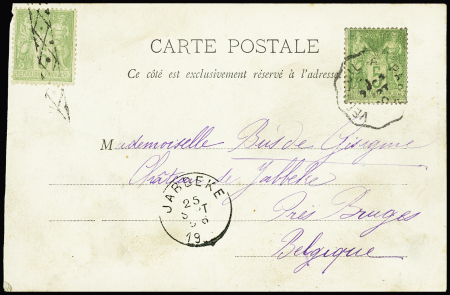 CARTE POSTALE
Ce côté est exclusivement réservé à l'adresse
Mademoiselle Bus de Gisignies
Château de Jabbeke
Près Bruges
Belgique
JABBEKE
25
19